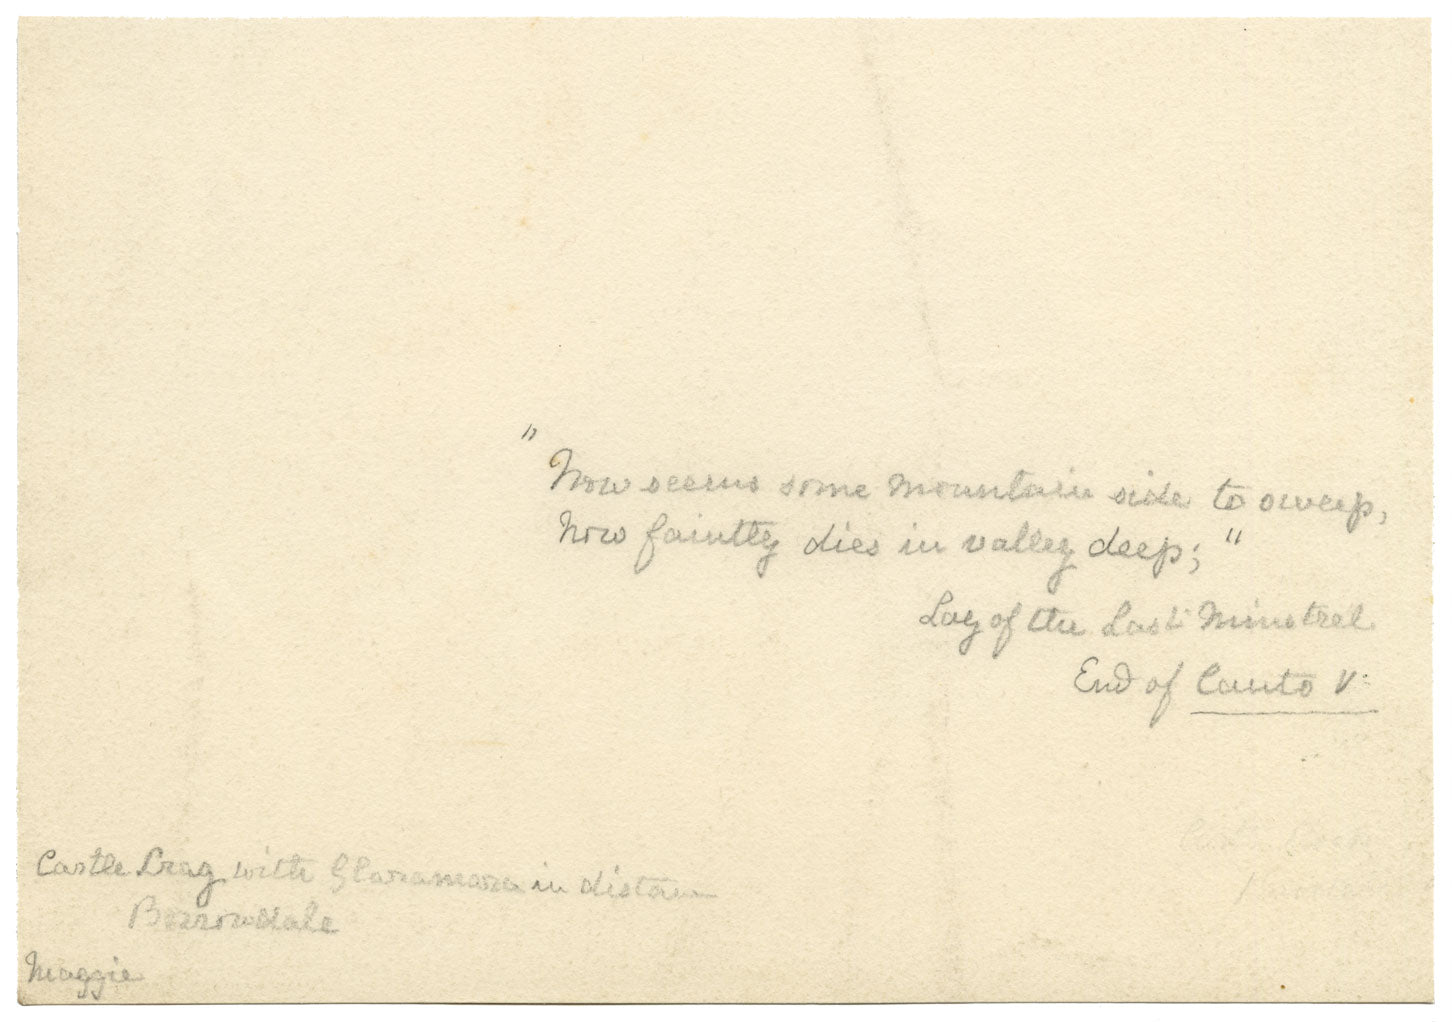 "Now seems some mountain side to sweep,
Now faintly dies in valley deep;"
Lay of the Last Minstrel
End of Canto V.
Castle Crag with Glaramara in distan
Borrowdale
Maggie